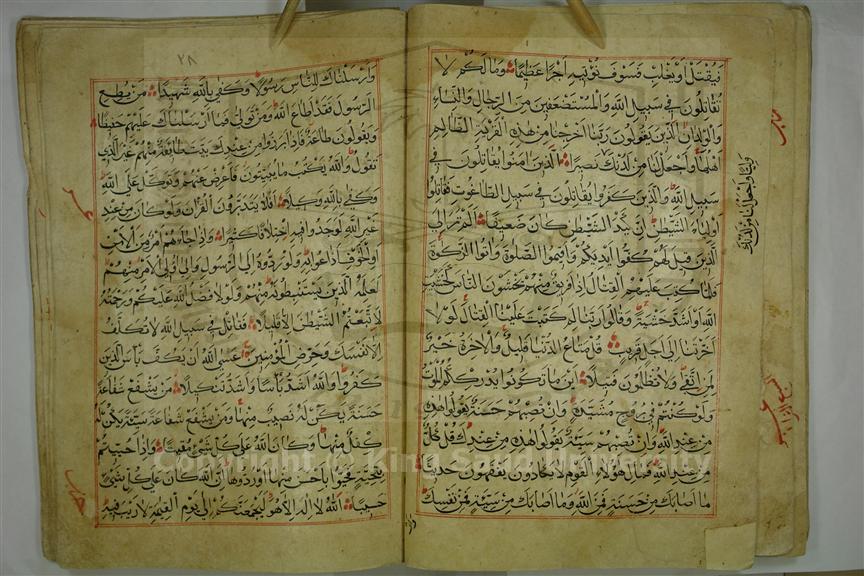 فيقتل او يغلب فسوف نؤتيه اجرا عظيما وما لكم لا
تقاتلون في سبيل الله والمستضعفين من الرجال والنساء
والولدان الذين يقولون ربنا اخرجنا من هذه القرية الظالم
اهلها واجعل لنا من لدنك نصيرا الذين امنوا يقاتلون في
سبيل الله والذين كفروا يقاتلون في سبيل الطاغوت فقاتلوا
اولياء الشيطن ان كيد الشيطن كان ضعيفا الم تر الى
الذين قيل لهم كفوا ايديكم واقيموا الصلوة واتوا الزكوة
فلما كتب عليهم القتال اذا فريق منهم يخشون الناس كخشية
الله او اشد خشية وقالوا ربنا لم كتبت علينا القتال لولا
اخرتنا الى اجل قريب قل متاع الدنيا قليل والاخرة خير
لمن اتقى ولا تظلمون فتيلا اين ما تكونوا يدرككم الموت
ولو كنتم في بروج مشيدة وان تصبهم حسنة يقولوا هذه
من عند الله وان تصبهم سيئة يقولوا هذه من عندك قل كل
من عند الله فمال هؤلاء القوم لا يكادون يفقهون حديثا
ما اصابك من حسنة فمن الله وما اصابك من سيئة فمن نفسك
وليا واجعل لنا من لدنك
٢٨
وارسلناك للناس رسولا وكفى بالله شهيدا من يطع
الرسول فقد اطاع الله ومن تولى فما ارسلناك عليهم حفيظا
ويقولون طاعة فاذا برزوا من عندك بيت طائفة منهم غير الذي
تقول والله يكتب ما يبيتون فاعرض عنهم وتوكل على الله
وكفى بالله وكيلا افلا يتدبرون القران ولو كان من عند
غير الله لوجدوا فيه اختلافا كثيرا واذا جاءهم امر من الامن
او الخوف اذاعوا به ولو ردوه الى الرسول والى اولي الامر منهم
لعلمه الذين يستنبطونه منهم ولولا فضل الله عليكم ورحمته
لاتبعتم الشيطن الا قليلا فقاتل في سبيل الله لا تكلف
الا نفسك وحرض المؤمنين عسى الله ان يكف باس الذين
كفروا والله اشد باسا واشد تنكيلا من يشفع شفاعة
حسنة يكن له نصيب منها ومن يشفع شفاعة سيئة يكن له
كفل منها وكان الله على كل شئ مقيتا واذا حييتم
بتحية فحيوا باحسن منها او ردوها ان الله كان على كل شئ
حسيبا الله لا اله الا هو ليجمعنكم الى يوم القيمة لا ريب فيه
Copyright © King Saud University